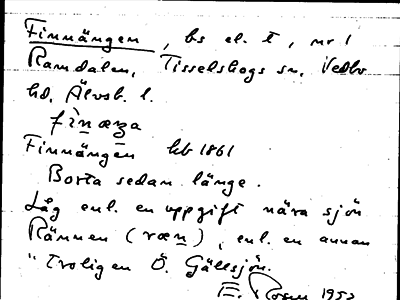 Finnängen, bs el. t, nr 1
Ramdalen, Tisselskogs sn, Vedbo
hd, Älvsb. l.
fìnæŋa
Finnängen hb 1861
Borta sedan länge.
Låg enl. en uppgift nära sjön
Rännen (ræn), enl. en annan
" Troligen Ö. Gällsjön.
E. Rosen 1952